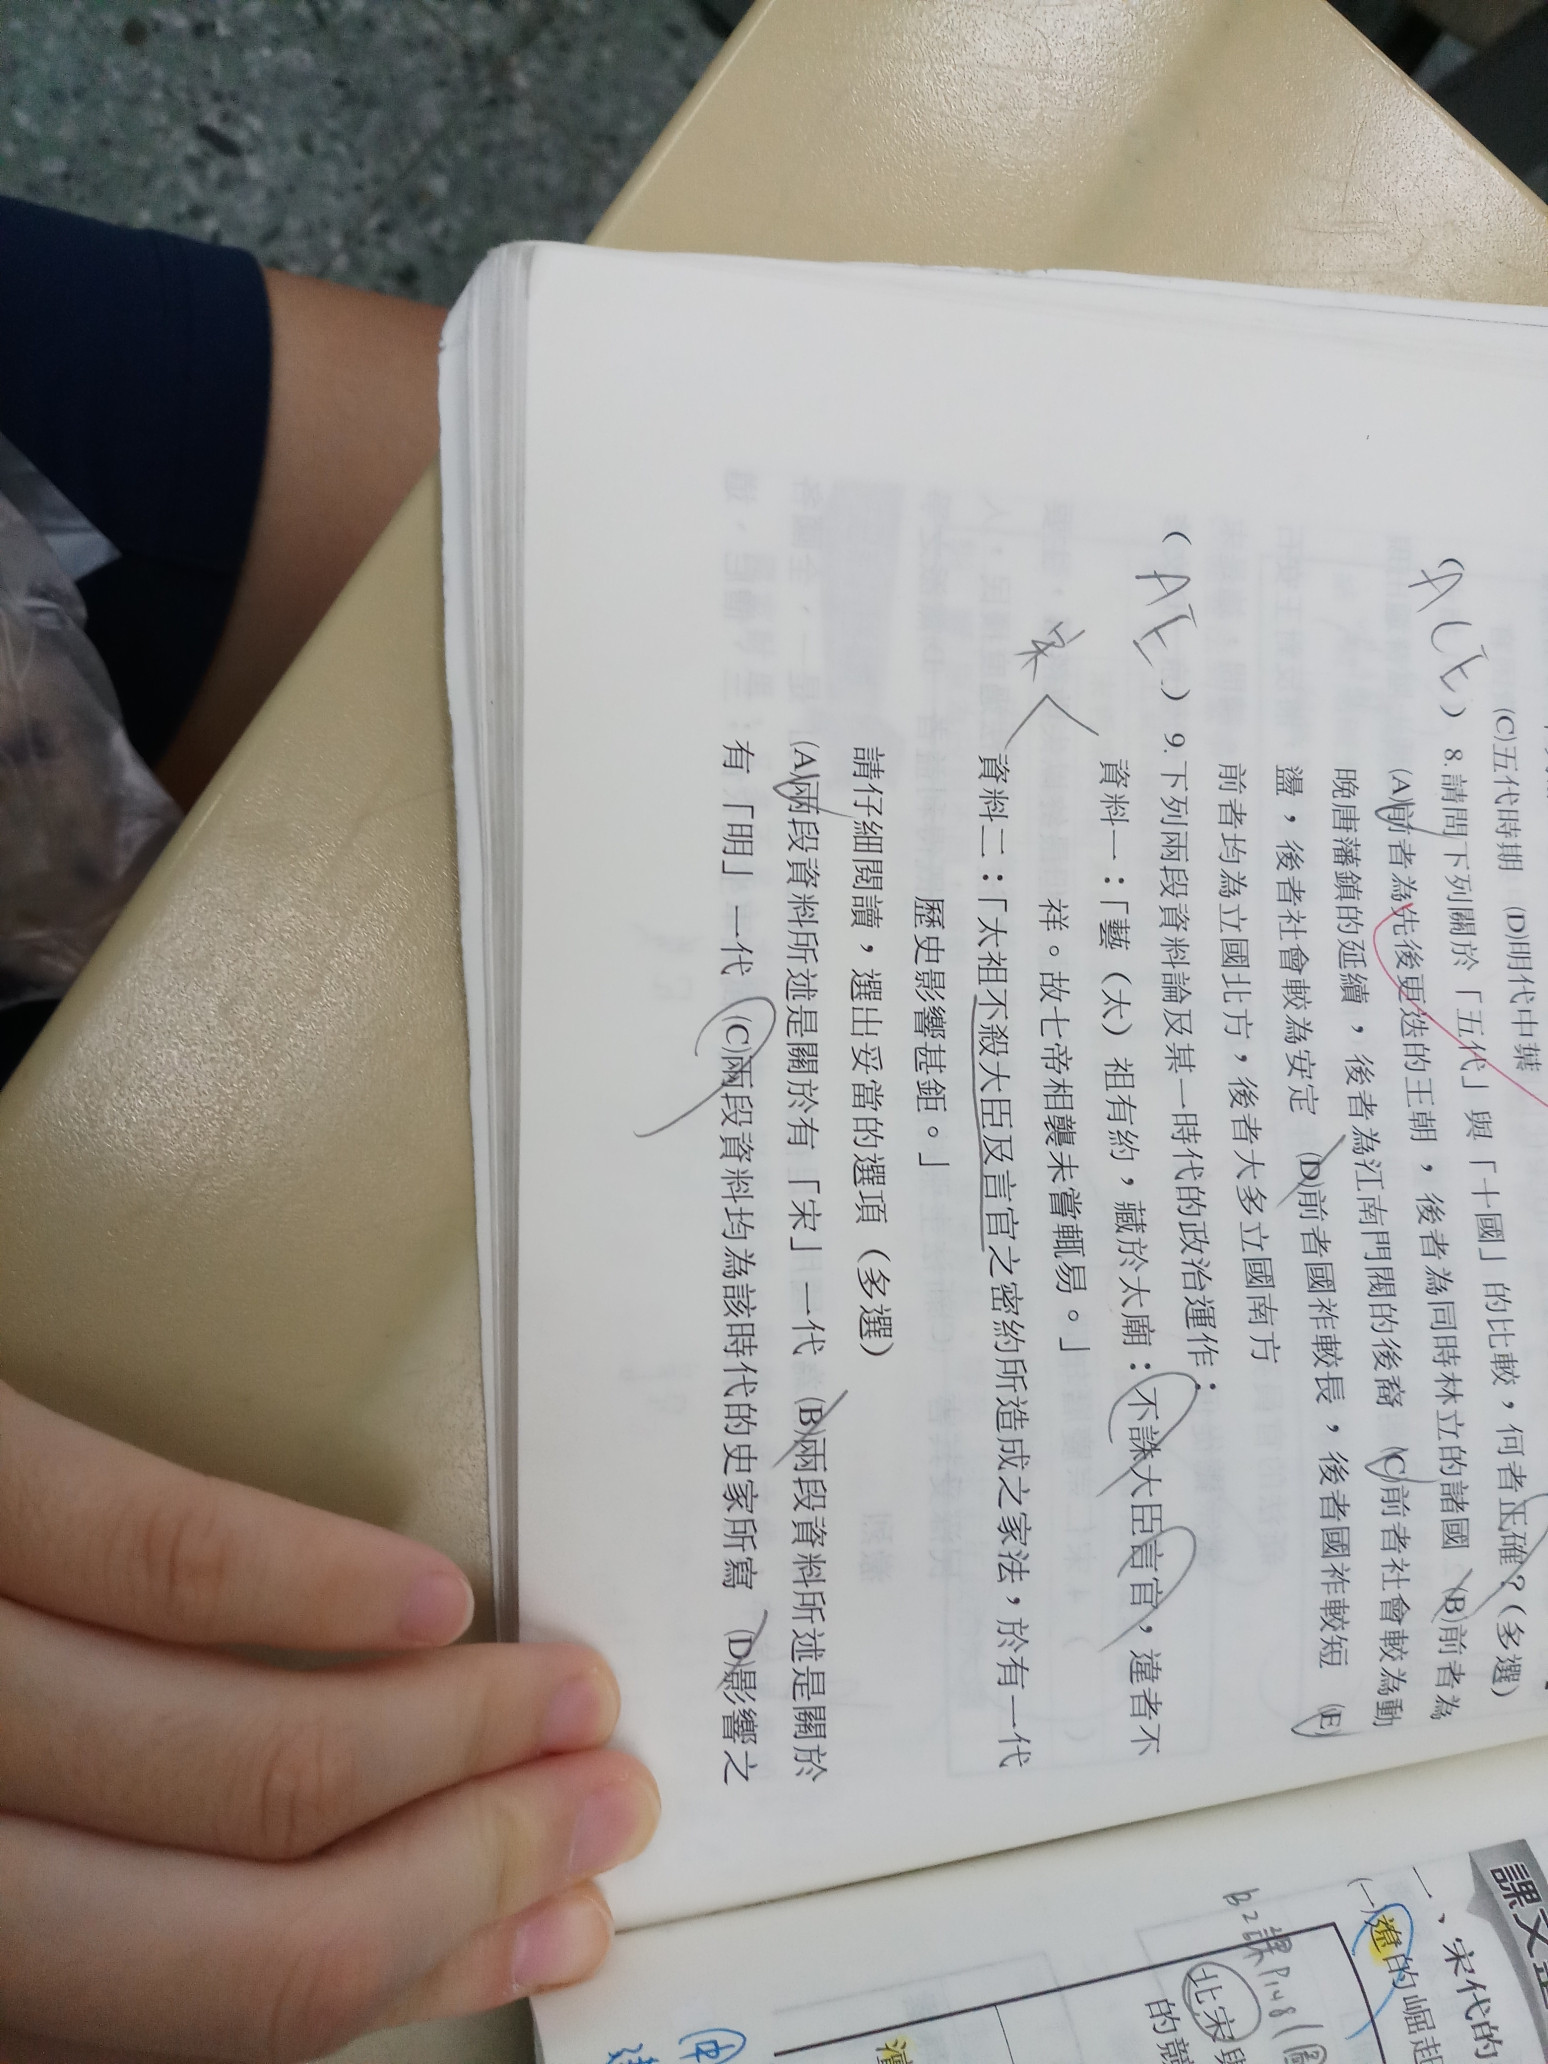 (C)五代時期 (D)明代中葉
(ACE) 8.請問下列關於「五代」與「十國」的比較，何者正確？(多選)
(A)前者為先後更迭的王朝，後者為同時林立的諸國 (B)前者為
晚唐藩鎮的延續，後者為江南門閥的後裔 (C)前者社會較為動
盪，後者社會較為安定 (D)前者國祚較長，後者國祚較短 (E)
前者均為立國北方，後者大多立國南方
(AE) 9.下列兩段資料論及某一時代的政治運作：
宋
資料一：「藝（太）祖有約，藏於太廟：不誅大臣言官，違者不
祥。故七帝相襲未嘗輒易。」
資料二：「太祖不殺大臣及言官之密約所造成之家法，於有一代
歷史影響甚鉅。」
請仔細閱讀，選出妥當的選項（多選）
(A)兩段資料所述是關於有「宋」一代 (B)兩段資料所述是關於
有「明」一代 (C)兩段資料均為該時代的史家所寫 (D)影響之
課文
一、宋代的
(一)遼的崛起
B2課P148(圖
北宋與
的競